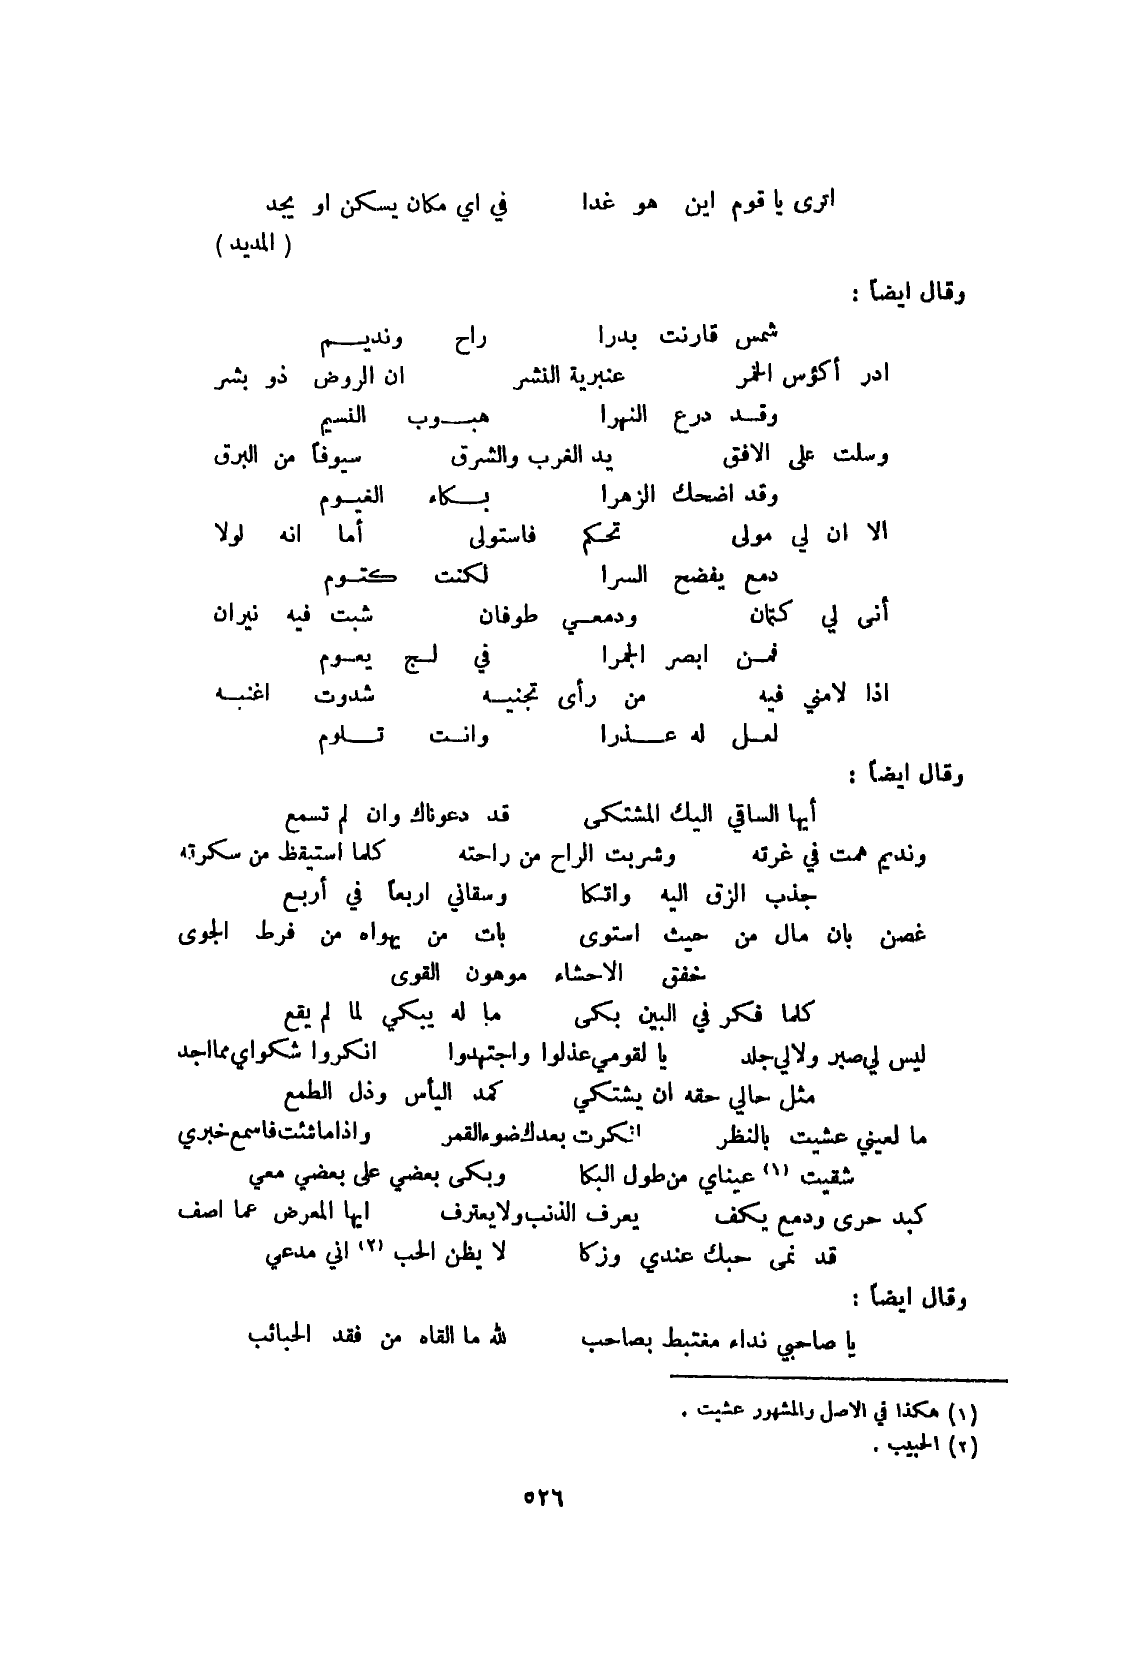 اترى يا قوم اين هو غدا في اي مكان يسكن او يجد
( المديد )
وقال ايضاً :
شمس قارنت بدرا راح ونديـــم
ادر أكؤس الخمر عنبرية النشر ان الروض ذو بشر
وقـد درع النهرا هبـوب النسيم
وسلت على الافق يد الغرب والشرق سيوفاً من البرق
وقد اضحك الزهرا بـكاء الغيـوم
الا ان لي مولى تحكم فاستولى أما انه لولا
دمع يفضح السرا لكنت كتـوم
أنى لي كتمان ودمعـي طوفان شبت فيه نيران
فمـن ابصر الجمرا في لـج يعـوم
اذا لامني فيه من رأى تجنيـه شدوت اغنيـه
لعـل له عـذرا وانـت تـلوم
وقال ايضاً :
أيها الساقي اليك المشتكى قد دعوناك وان لم تسمع
ونديم همت في غرته وشربت الراح من راحته كلما استيقظ من سكرته
جذب الزق اليه واتكا وسقاني اربعاً في أربع
غصن بان مال من حيث استوى بات من يهواه من فرط الجوى
خفق الاحشاء موهون القوى
كلما فكر في البين بكى ما له يبكي لما لم يقع
ليس لي صبر ولا لي جلد يا لقومي عذلوا واجتهدوا انكروا شكواي مما اجد
مثل حالي حقه ان يشتكي كمد اليأس وذل الطمع
ما لعيني عشيت بالنظر انكرت بعدك ضوء القمر واذا ما شئت فاسمع خبري
شقيت (١) عيناي من طول البكا وبكى بعضي على بعضي معي
كبد حرى ودمع يكف يعرف الذنب ولا يعترف ايها المعرض عما اصف
قد نمى حبك عندي وزكا لا يظن الحب (٢) اني مدعي
وقال ايضاً :
يا صاحبي نداء مغتبط بصاحب لله ما القاه من فقد الحبائب
(١) هكذا في الاصل والمشهور عشيت .
(٢) الحبيب .
٥٢٦